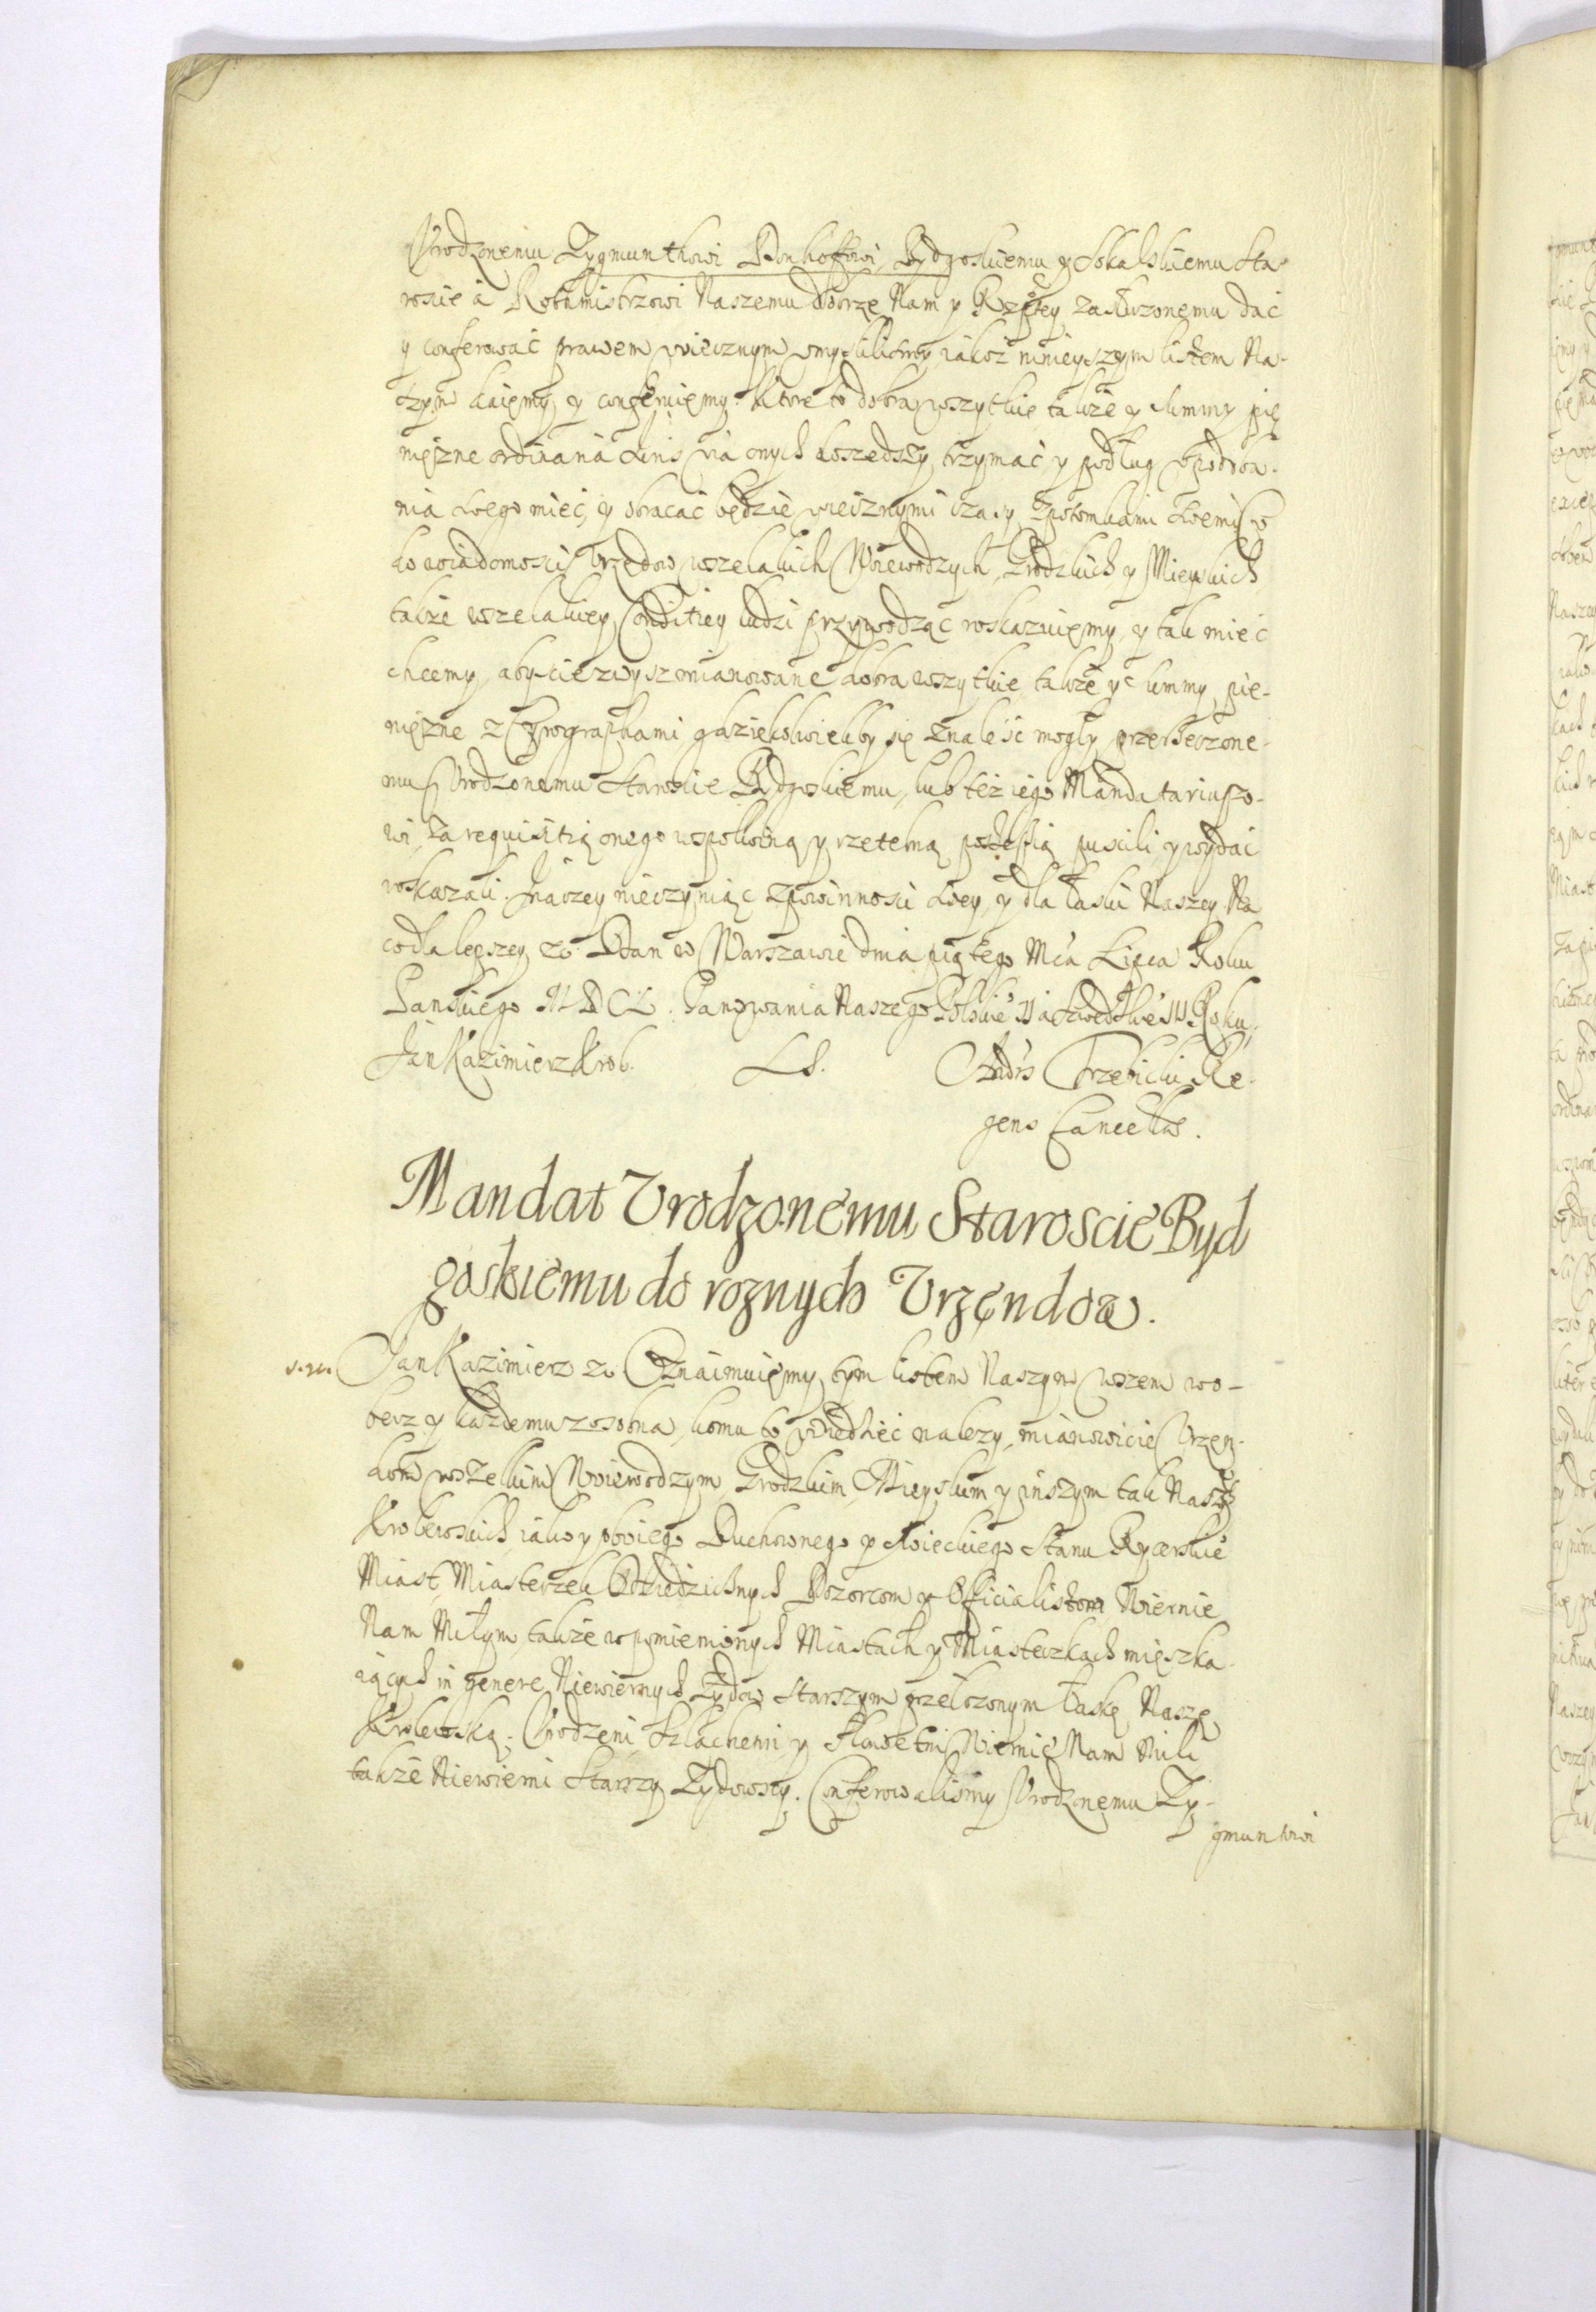 Vrodzonemu Zygmunthowi Denhoffowi Bydgoskiemu y Sokalskiemu Sta-
roscie a Rothmistrzowi Naszemu dobrze Nam y Rzptey zasłuzonemu dać
y conferować prawem wiecznym umyslilismy, iakoż ninieyszym listem Na-
szym daięmy y conferuięmy. Ktore to dobra wszytkie także y Summy pie
niężne ordinaria
nia swego mieć, y obracać będzie wiecznymi czasy, z potomkami swemi
do wiadomosci Vrzędow wszelakich Woiewodzych, Grodzkich y Mieyskich
także wszelakiey Conditiey ludzi przywodząc roskazuięmy, y tak mieć
chcemy, abyscie zwysz mianowane dobra wszytkie, także y Summy pie-
niężne z Chyrographami gdziekolwiekby się znaleść mogły, przerzeczone-
mu Vrodzonemu Staroscie Bydgoskiemu, lub też iego Mandatariuszo-
wi, za requisitią onego wspokoiną y rzetelną possessią puscili, y wydać
roskazali. Inaczey nieczyniąc z powinnosci swey, y dla łaski Naszey. Na
co dla lepszey etc. Dan w Warszawie dnia piątego Mca Lipca Roku
Panskiego MDCL. Panowania Naszego Polskie° II a Szwedzkie° III Roku.
Jan Kazimierz Krol. LS. Andrs Trzebicki Re-
gens Cancellar.
Mandat Vrodzonemu Staroscie Byd
goskiemu do roznych Vrzęndow.
Jan Kazimierz etc. Oznaimuięmy tym listem Naszym wszem wo-
becz y każdemu zosobna, komu to wiedzieć nalezy, mianowicie Vrzen-
dom wszelkim Woiewodzym, Grodzkim, Mieyskim y inszym tak Naszych
Krolewskich iako y oboiego Duchownego y Swieckiego Stanu Rycerskie°
Miast, Miasteczek Dziedzicznych Dozorcom y Officialistom Wiernie
Nam Miłym, także wpomienionych Miastach y Miasteczkach mięszka-
iących in genere Niewiernych Zydow Starszym przełozonym łaskę Naszę
Krolewską. Vrodzeni Szlachetni y Sławetni Wiernie Nam Mili
także Niewierni Starszy Zydowscy. Conferowalismy Vrodzonemu Zy-
gmuntowi